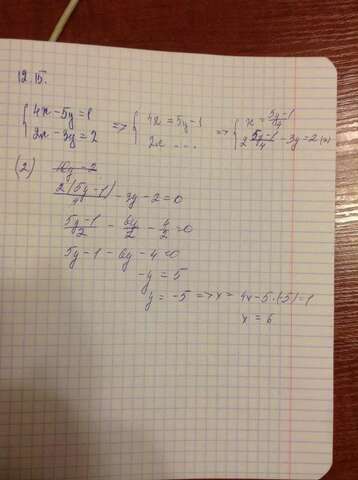 12.15.
{ 4x - 5y = 1 => { 4x = 5y - 1 => { x = 5y-1/4
2x - 3y = 2 2x ... 2 5y-1/4 - 3y = 2 (2)
(2) 10y - 2
2(5y-1)/4 - 3y - 2 = 0
5y-1/2 - 6y/2 - 4/2 = 0
5y - 1 - 6y - 4 = 0
-y = 5
y = -5 => x = 4x - 5·(-5) = 1
x = 6